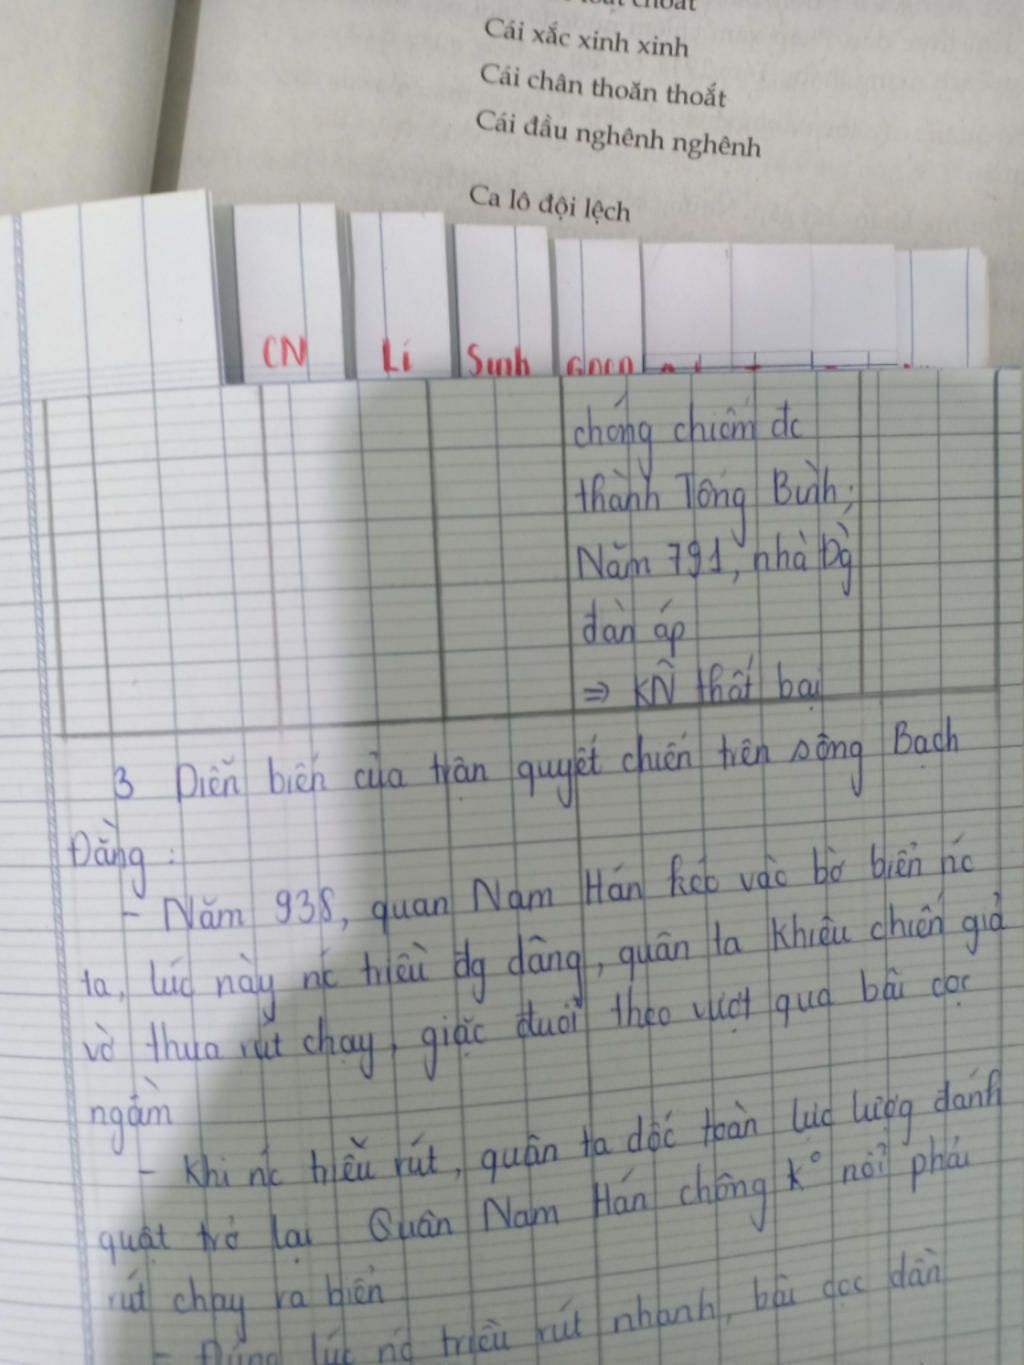 Cái xắc xinh xinh
Cái chân thoăn thoắt
Cái đầu nghênh nghênh
Ca lô đội lệch
CN Lí Sinh GDCD
chóng chiếm đc
thành Tống Bình;
Năm 791, nhà Đg
đàn áp
⇒ KN thất bại
3 Diễn biến của trận quyết chiến trên sông Bạch
Đằng:
- Năm 938, quan Nam Hán kéo vào bờ biển nc
ta, lúc này nc triều dg dâng, quân ta khiêu chiến giả
vờ thua rút chạy, giặc đuổi theo vượt qua bãi cọc
ngầm
- Khi nc triều rút, quân ta dốc toàn lực lượg đánh
quật trở lại Quân Nam Hán chống k° nổi phải
rút chạy ra biển
- Đúng lúc nc triều rút nhanh, bãi cọc dần